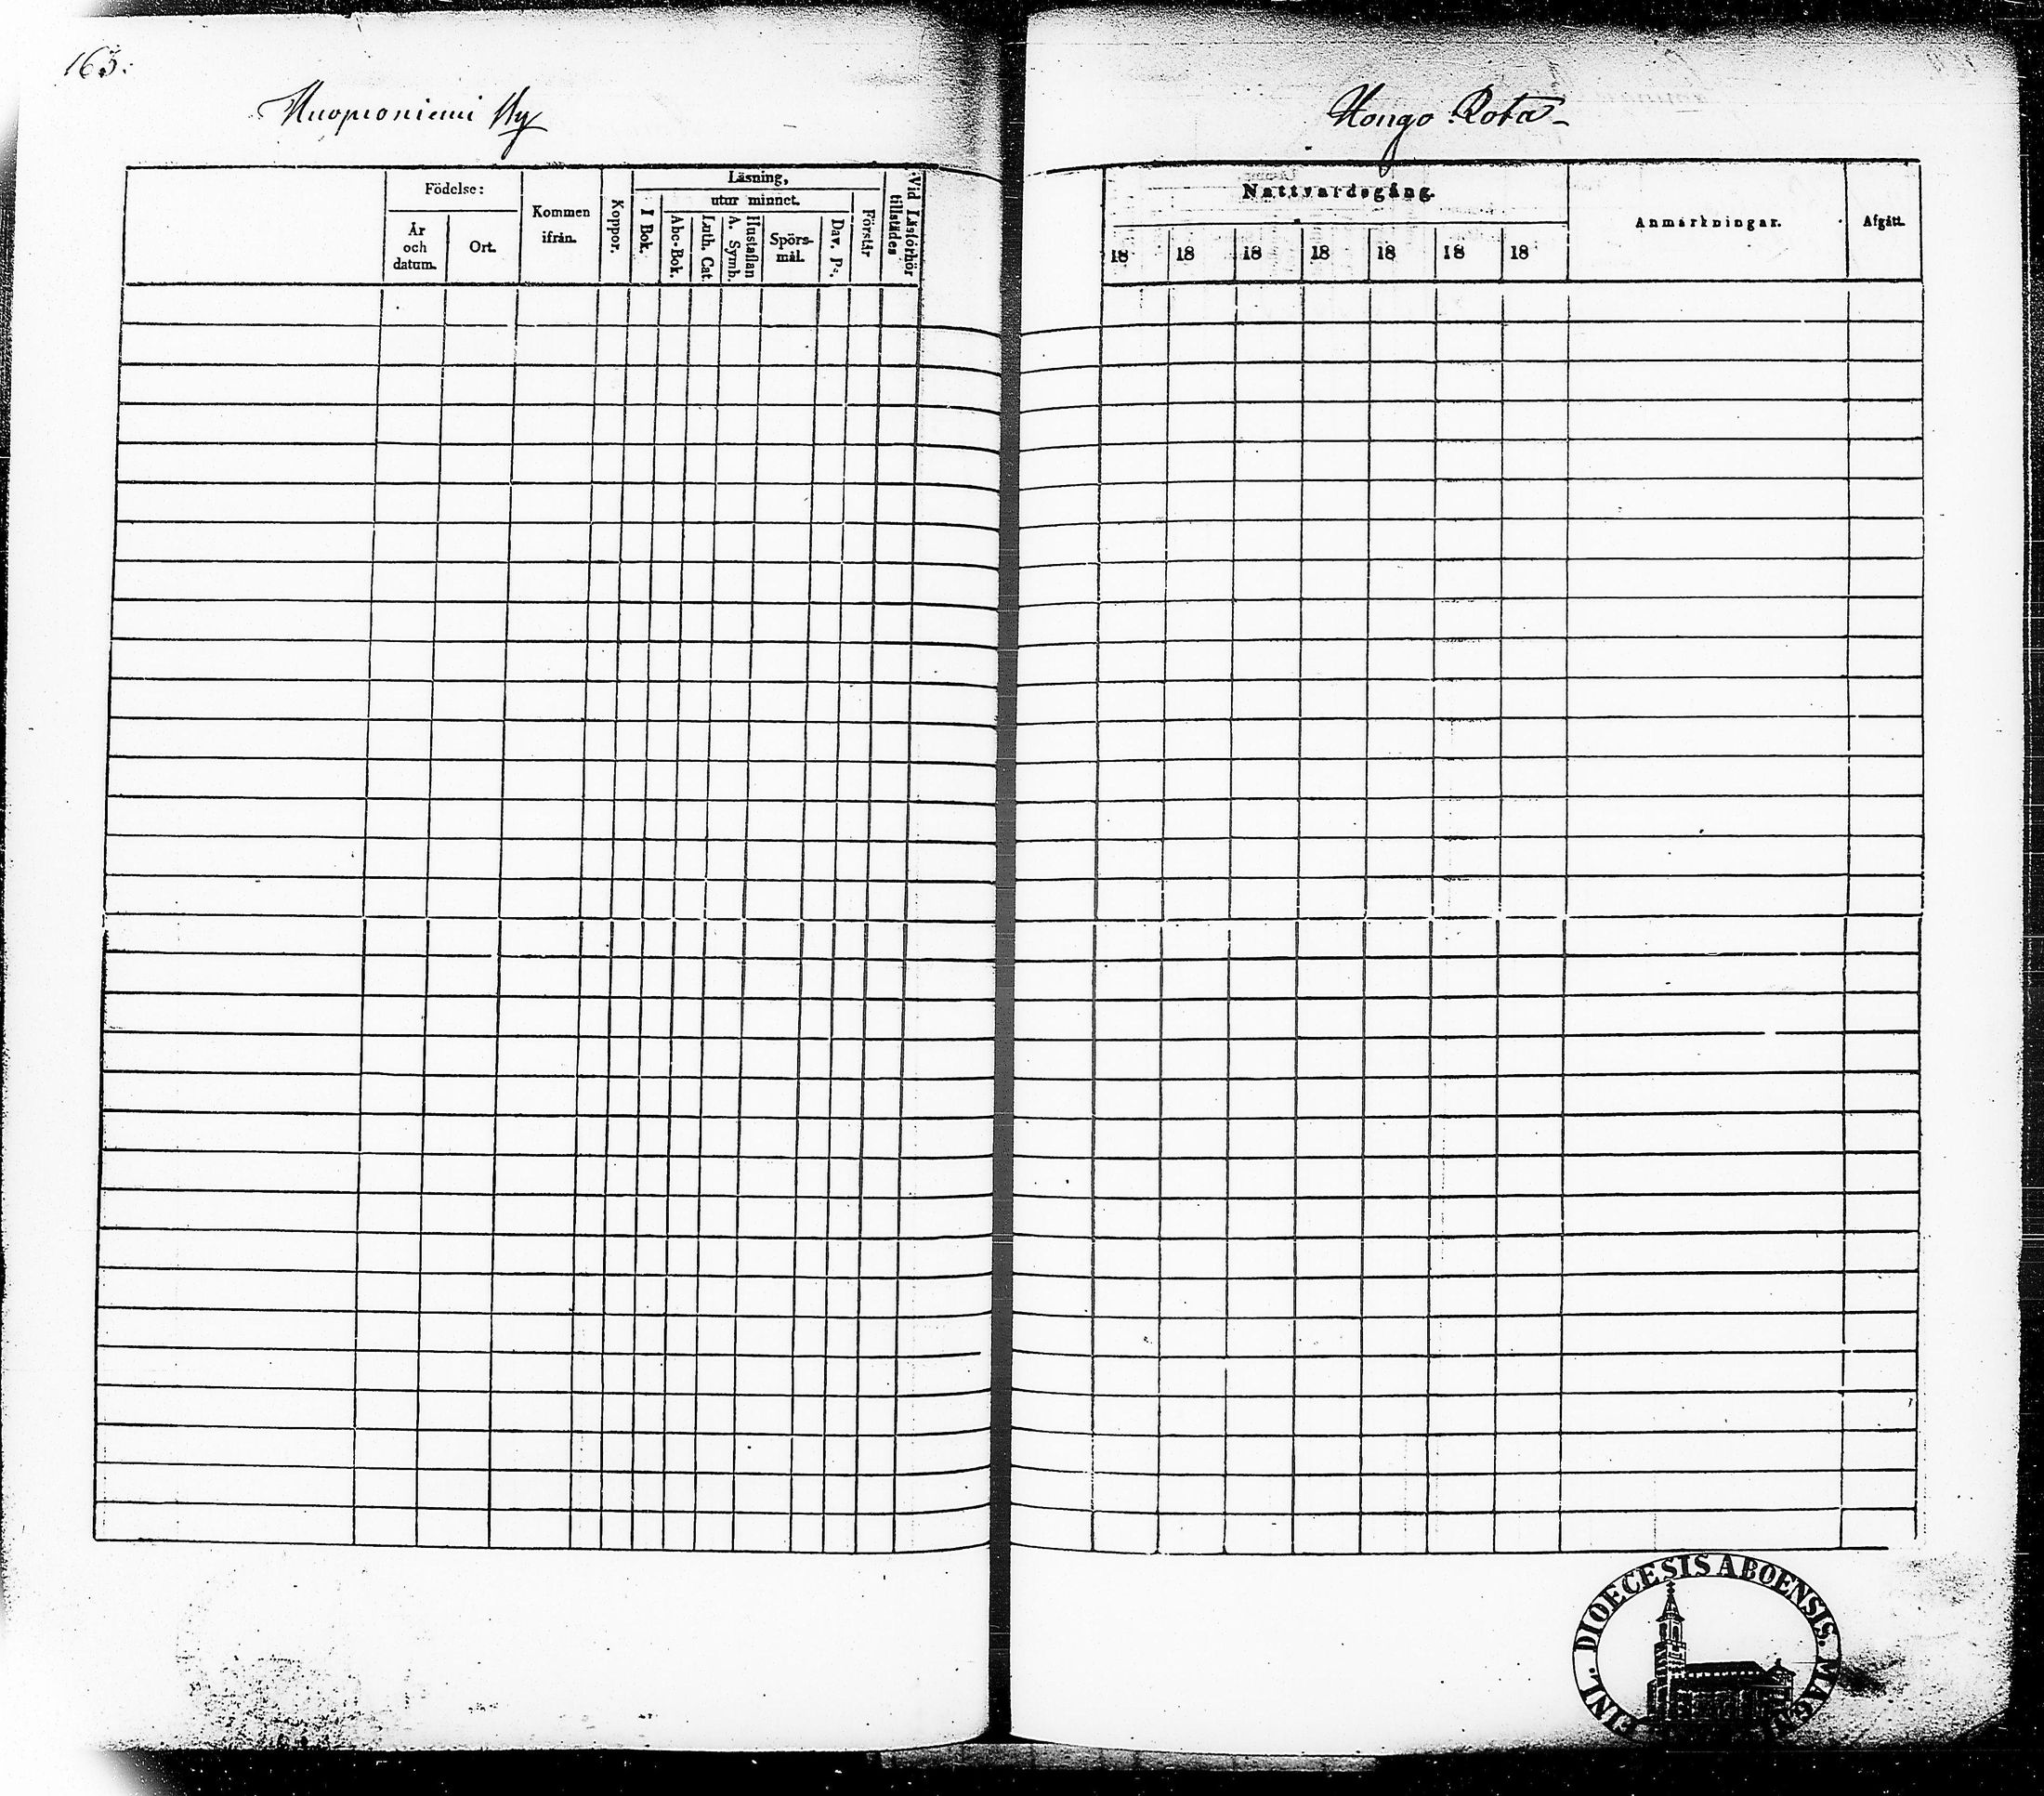 163.
Kuoppaniemi By
Hongo Rota
Födelse:
År
och
datum.
Ort.
Kommen
ifrån.
Koppor.
Läsning,
utur minnet.
I Bok.
Abc-Bok.
Luth. Cat.
A. Symb.
Hustaflan
Spörs-
mål.
Dav. Ps.
Förstår
Vid Läsförhör
tillstädes
Nattvardsgång.
18 18 18 18 18 18 18
Anmärkningar.
Afgått.
DIOECESIS ABOENSIS. MAGN.